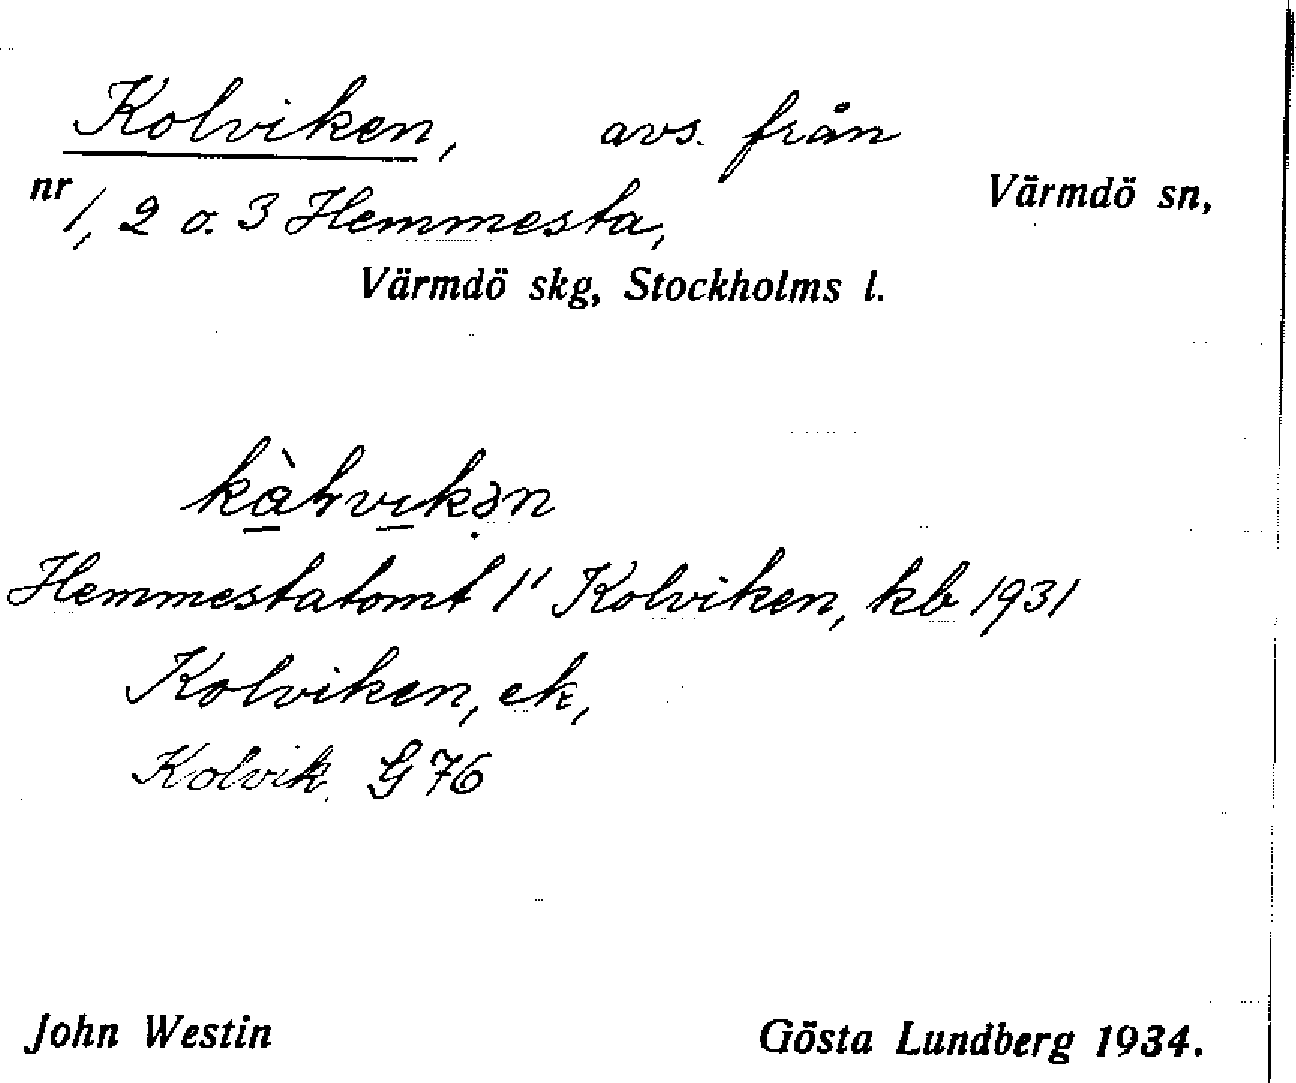 Kolviken, avs. från
nr 1, 2 o. 3 Hemmesta, Värmdö sn,
Värmdö skg, Stockholms l.
Hemmestatomt 1" Kolviken, kb 1931
Kolviken, ek,
Kolvik. G 76
John Westin Gösta Lundberg 1934.